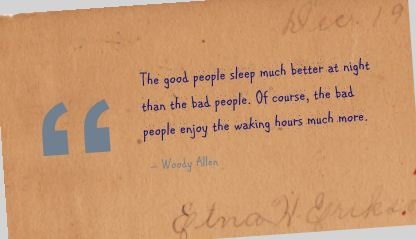 Dec. 19
The good people sleep much better at night
than the bad people. Of course, the bad
people enjoy the waking hours much more.
– Woody Allen
Etna H. Erikso